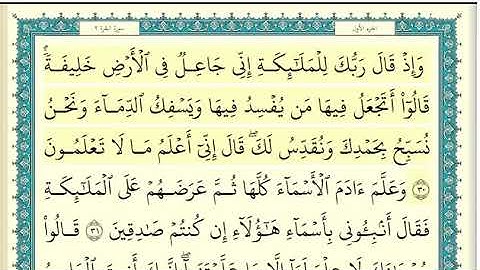 سورة البقرة ٢ الجزء الأول
وَإِذْ قَالَ رَبُّكَ لِلْمَلَٰٓئِكَةِ إِنِّى جَاعِلٌ فِى ٱلْأَرْضِ خَلِيفَةً ۖ
قَالُوٓا۟ أَتَجْعَلُ فِيهَا مَن يُفْسِدُ فِيهَا وَيَسْفِكُ ٱلدِّمَآءَ وَنَحْنُ
نُسَبِّحُ بِحَمْدِكَ وَنُقَدِّسُ لَكَ ۖ قَالَ إِنِّىٓ أَعْلَمُ مَا لَا تَعْلَمُونَ
٣٠ وَعَلَّمَ ءَادَمَ ٱلْأَسْمَآءَ كُلَّهَا ثُمَّ عَرَضَهُمْ عَلَى ٱلْمَلَٰٓئِكَةِ
فَقَالَ أَنۢبِـُٔونِى بِأَسْمَآءِ هَٰٓؤُلَآءِ إِن كُنتُمْ صَٰدِقِينَ ٣١ قَالُوا۟